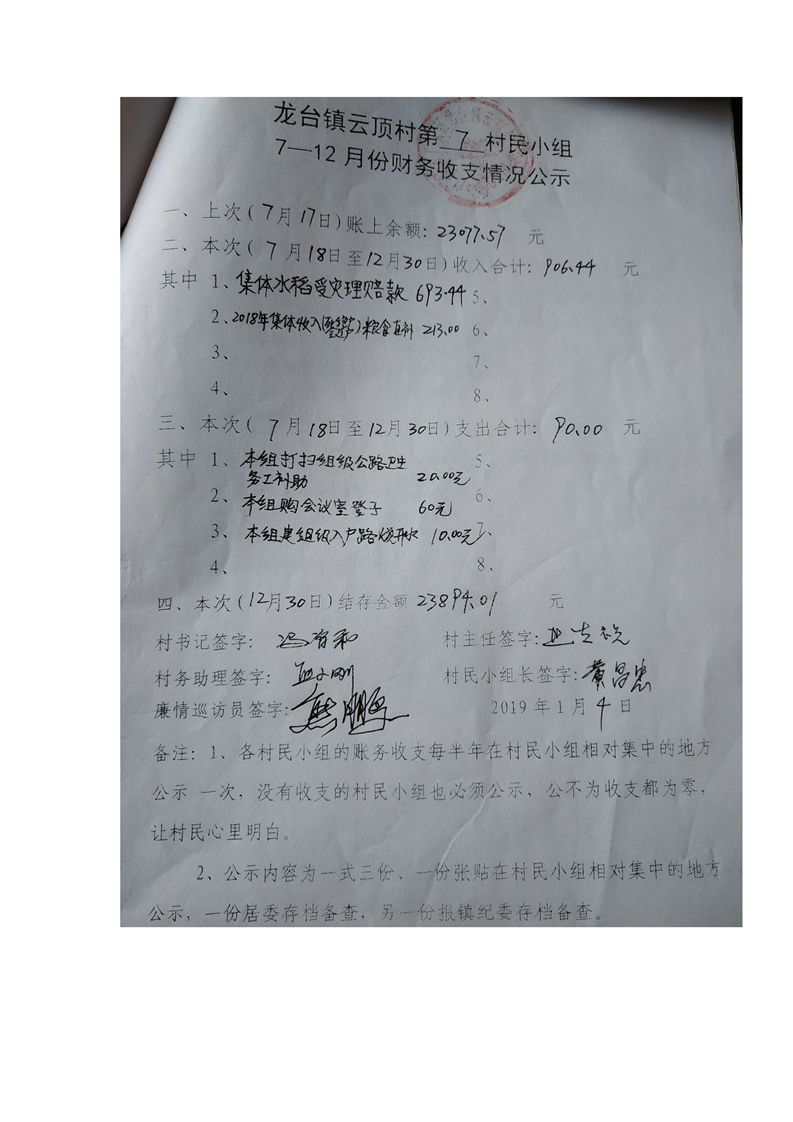 龙台镇云顶村第 7 村民小组
7—12月份财务收支情况公示
一、上次(7月17日)账上余额:23077.57 元
二、本次(7月18日至12月30日)收入合计:906.44 元
其中 1、集体水稻受灾理赔款 693.44 5、
2、2018年集体收入()粮食直补 213.00 6、
3、 7、
4、 8、
三、本次(7月18日至12月30日)支出合计:90.00 元
其中 1、本组打扫组级公路卫生 5、
务工补助 20.00元
2、本组购会议室凳子 60元 6、
3、本组建组级入户路 10.00元 7、
4、 8、
四、本次(12月30日)结存金额 23894.01 元
村书记签字: 村主任签字:
村务助理签字: 村民小组长签字:黄昌忠
廉情巡访员签字:熊鹏 2019年1月4日
备注:1、各村民小组的账务收支每半年在村民小组相对集中的地方
公示 一次,没有收支的村民小组也必须公示,公不为收支都为零,
让村民心里明白。
2、公示内容为一式三份,一份张贴在村民小组相对集中的地方
公示,一份居委存档备查,另一份报镇纪委存档备查。